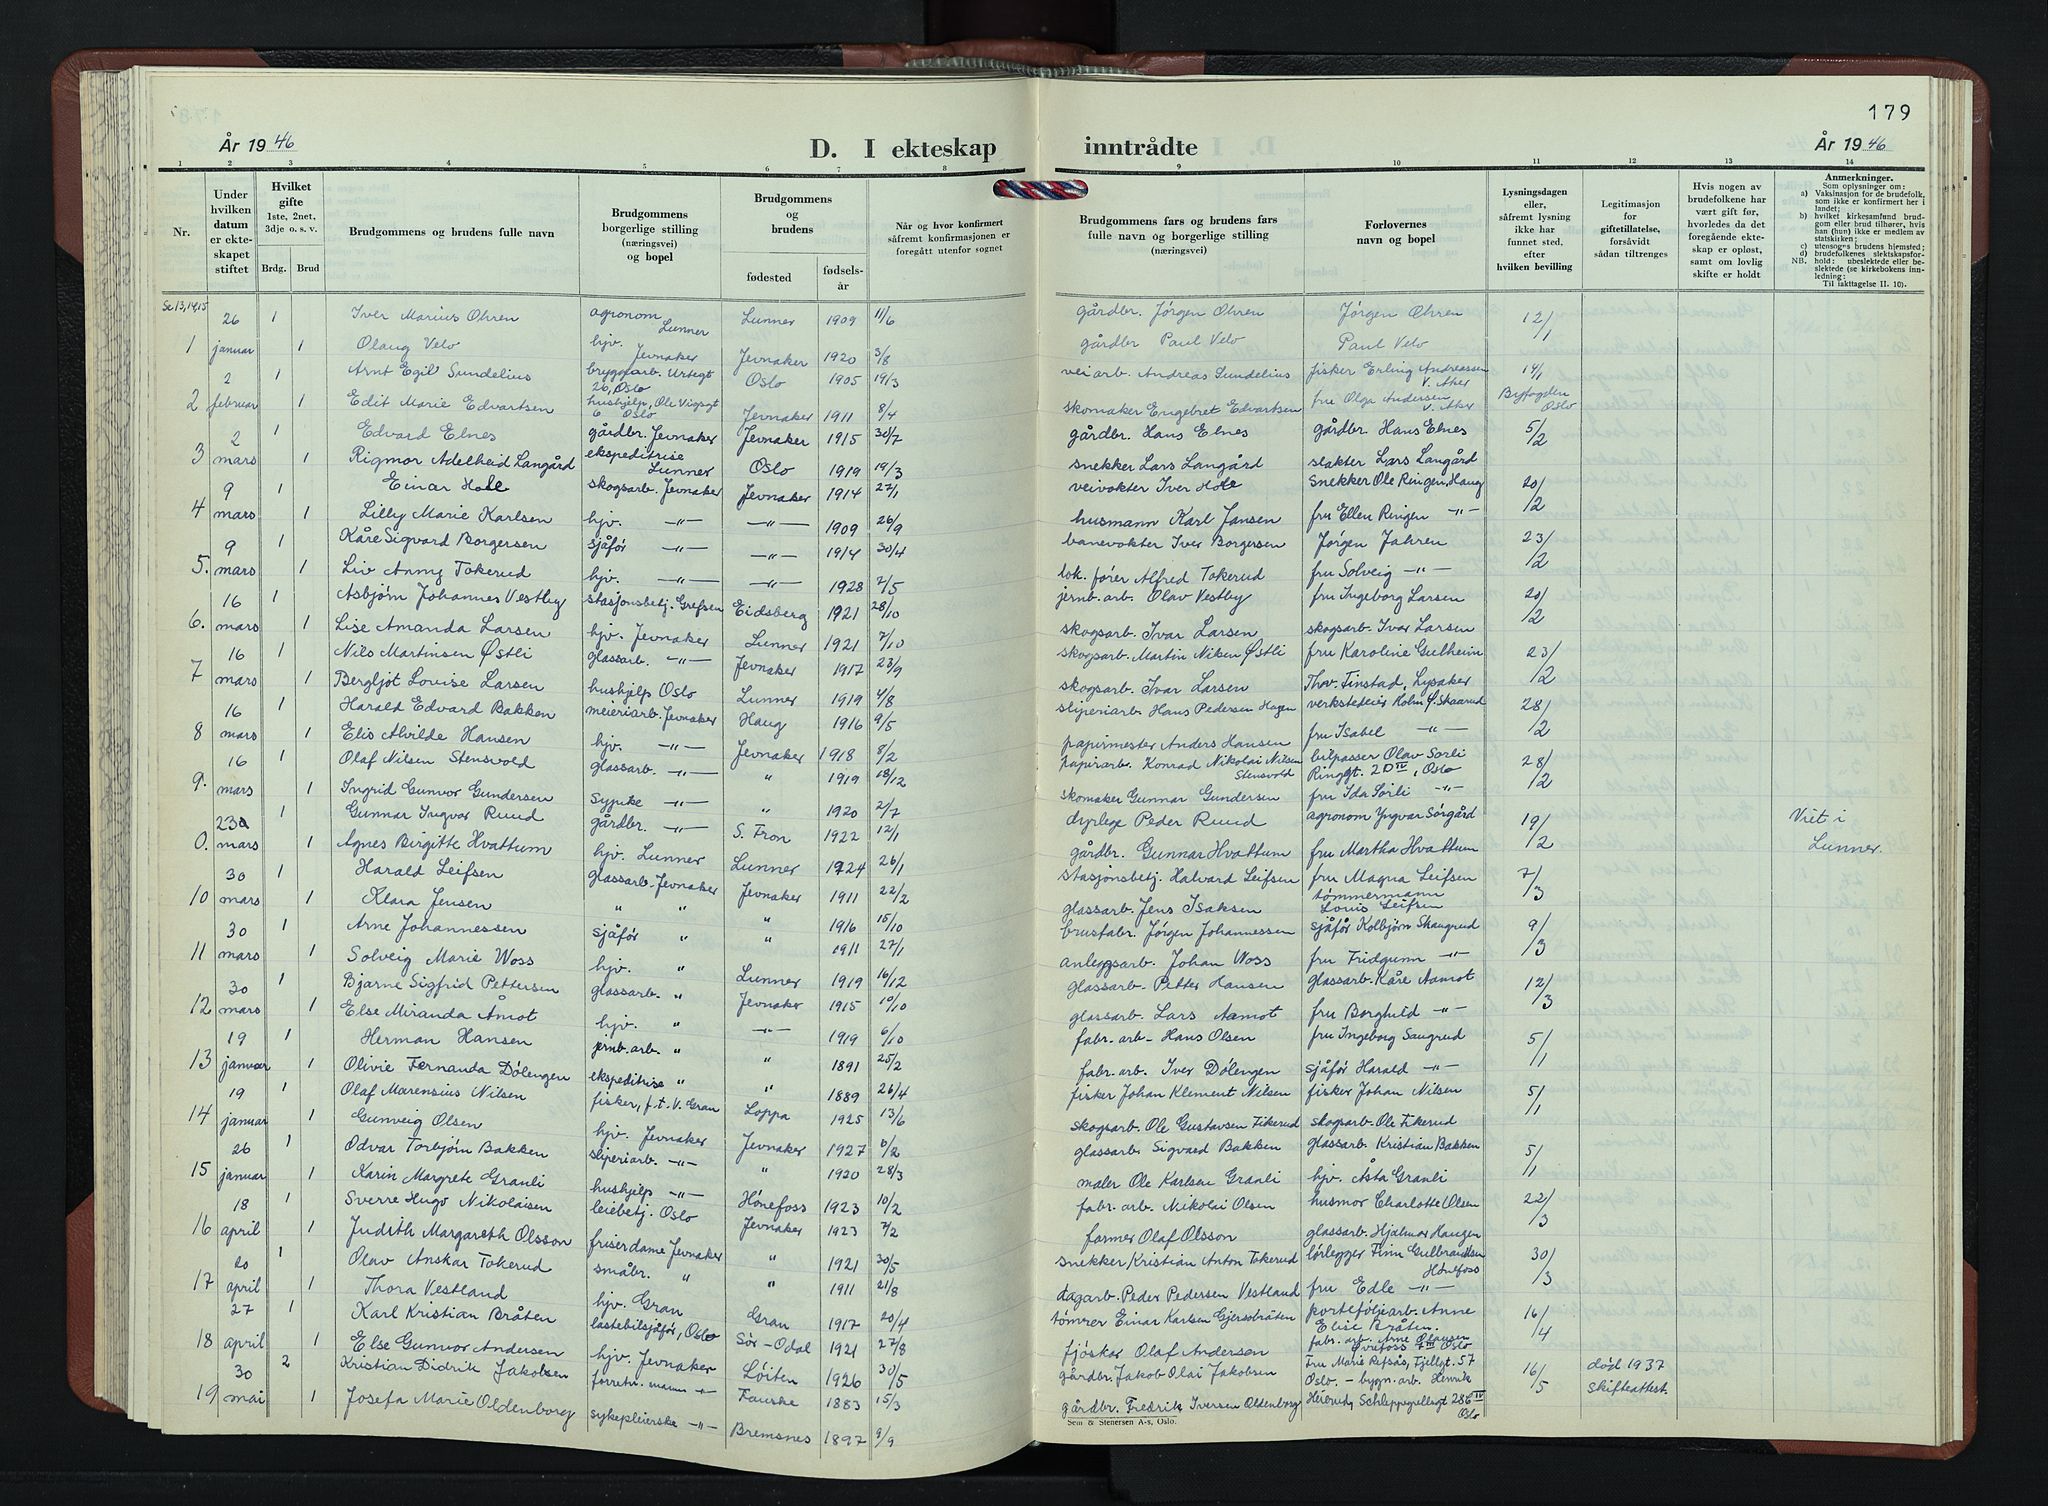 179
År 1946
D. I ekteskap inntrådte
År 1946
1 2 3 4 5 6 7 8 9 10 11 12 13 14
Nr.
Under hvilken datum er ekteskapet stiftet
Hvilket gifte
1ste, 2net, 3dje o. s. v.
Brdg. Brud
Brudgommens og brudens fulle navn
Brudgommens borgerlige stilling (næringsvei) og bopel
Brudgommens og brudens
fødested fødselsår
Når og hvor konfirmert såfremt konfirmasjonen er foregått utenfor sognet
Brudgommens fars og brudens fars fulle navn og borgerlige stilling (næringsvei)
Forlovernes navn og bopel
Lysningsdagen eller, såfremt lysning ikke har funnet sted, efter hvilken bevilling
Legitimasjon for giftetillatelse, forsåvidt sådan tiltrenges
Hvis nogen av brudefolkene har vært gift før, hvorledes da det foregående ekteskap er opløst, samt om lovlig skifte er holdt
Anmerkninger.
Som oplysninger om:
a) Vaksinasjon for de brudefolk, som ikke er konfirmert her i landet;
b) hvilket kirkesamfund brudgom eller brud tilhører, hvis han (hun) ikke er medlem av statskirken;
c) utensogns brudens hjemsted;
d) brudefolkenes slektskapsforhold: ubeslektede eller beslektede (se kirkebokens innledning:
NB.
Til iakttagelse II. 10).
Se 13,14,15
26 1 Iver Marius Ohren agronom Lunner Lunner 1909 11/6 gårdbr. Jørgen Ohren Jørgen Ohren 12/1
1 januar 1 Olaug Velo hjv. Jevnaker Jevnaker 1920 3/8 gårdbr Paul Velo Paul Velo
2 1 Arnt Egil Sundelius bryggarb. Urtegt 26, Oslo Oslo 1905 19/3 veiarb. Andreas Sundelius fisker Erling Andreassen V. Aker 14/1
2 februar 1 Edit Marie Edvartsen hushjelp, Ole Vigsgt 6 Oslo Jevnaker 1911 8/4 skomaker Engebret Edvartsen fru Olga Andersen V. Aker Byfogden Oslo
2 1 Edvard Elnes gårdbr. Jevnaker Jevnaker 1915 30/7 gårdbr. Hans Elnes gårdbr. Hans Elnes 5/2
3 mars 1 Rigmor Adelheid Langård ekspeditrise Lunner Oslo 1919 19/3 snekker Lars Langård slakter Lars Langård
9 1 Einar Hole skogsarb. Jevnaker Jevnaker 1914 27/1 veivokter Iver Hole snekker Ole Ringen, Haug 20/2
4 mars 1 Lilly Marie Karlsen hjv. -"- -"- 1909 26/9 husmann Karl Jansen fru Ellen Ringen -"-
9 1 Kåre Sigvard Borgersen sjåfør -"- -"- 1914 30/4 banevokter Iver Borgersen Jørgen Jahren 23/2
5. mars 1 Liv Anny Tokerud hjv. -"- -"- 1928 7/5 lok. fører Alfred Tokerud fru Solveig -"-
16 1 Asbjørn Johannes Vestby stasjonsbetj. Grefsen Eidsberg 1921 28/10 jernb. arb. Olav Vestby fru Ingeborg Larsen 20/2
6. mars 1 Lise Amanda Larsen hjv. Jevnaker Lunner 1921 7/10 skogsarb. Ivar Larsen skogsarb. Ivar Larsen
16 1 Nils Martinsen Østli glassarb. -"- Jevnaker 1917 23/9 skogsarb. Martin Nilsen Østli fru Karoline Gulheim 23/2
7 mars 1 Bergljot Lovise Larsen hushjelp Oslo Lunner 1919 4/8 skogsarb. Ivar Larsen Thov. Finstad, Lysaker
16 1 Harald Edvard Bakken meieriarb. Jevnaker Haug 1916 9/5 sliperiarb. Hans Pedersen Hagen verkstedeier Holm Ø. Skaarud 28/2
8 mars 1 Elis Alvilde Hansen hjv. -"- Jevnaker 1918 8/2 papirmester Anders Hansen fru Isabel -"-
16 1 Olaf Nilsen Stensvold glassarb. -"- " 1919 18/12 papirarb. Konrad Nikolai Nilsen Stensvold bilpasser Olav Sorli Ringgt. 20 IV, Oslo 28/2
9. mars 1 Ingrid Gunvor Gundersen sypike -"- " 1920 2/7 skomaker Gunnar Gundersen fru Ida Sorli -"-
23a 1 Gunnar Ingvar Ruud gårdbr. -"- S. Fron 1922 12/1 dyrlege Peder Ruud agronom Yngvar Sørgård 19/2 Viet i
0. mars 1 Agnes Birgitte Hvattum hjv. Lunner Lunner 1924 26/1 gårdbr. Gunnar Hvattum fru Martha Hvattum Lunner.
30 1 Harald Leifsen glassarb. Jevnaker Jevnaker 1911 22/2 stasjonsbetj. Halvard Leifsen fru Magna Leifsen 7/3
10 mars 1 Klara Jensen " " " 1916 15/10 glassarb. Jens Isaksen tømmermann Louis Leifsen
30 1 Arne Johannessen sjåfør " " 1911 27/1 brusfabr. Jørgen Johannessen sjåfør Kolbjørn Skaugrud 9/3
11 mars 1 Solveig Marie Woss hjv. " Lunner 1919 16/12 anleggsarb. Johan Woss fru Fridgunn -"-
30 1 Bjarne Sigfrid Pettersen glassarb. " Jevnaker 1915 10/10 glassarb. Petter Hansen glassarb. Kåre Aamot 12/3
12 mars 1 Else Miranda Åmot hjv. " -"- 1919 6/10 glassarb. Lars Aamot fru Borghild -"-
19 1 Herman Hansen jernb. arb. " " 1891 25/2 fabr. arb. Hans Olsen fru Ingeborg Saugrud 5/1
13 januar 1 Olivie Fernanda Dölengen ekspeditrise " " 1889 26/4 fabr. arb. Iver Dölengen sjåfør Harald -"-
19 1 Olaf Marensius Nilsen fisker, f.t. V. Gran Loppa 1925 13/6 fisker Johan Klement Nilsen fisker Johan Nilsen 5/1
14 januar 1 Gunveig Olsen hjv. Jevnaker Jevnaker 1927 6/2 skogsarb. Ole Gustavsen Fikerud skogsarb. Ole Fikerud
26 1 Odvar Torbjørn Bakken sliperiarb. -"- " 1920 28/3 glassarb. Sigvard Bakken glassarb. Kristian Bakken 5/1
15 januar 1 Karin Margrete Granli hushjelp -"- Hønefoss 1923 10/2 maler Ole Karlsen Granli hjv. Åsta Granli
18 1 Sverre Hugo Nikolaisen leiebetj. Oslo Jevnaker 1923 7/2 fabr. arb. Nikolai Olsen husmor Charlotte Olsen 22/3
16 april 1 Judith Margareth Olsson friserdame Jevnaker " 1921 30/5 farmer Olaf Olsson glassarb. Hjalmar Haugen
20 1 Olav Anskar Tokerud småbr. " " 1911 21/8 snekker Kristian Anton Tokerud rørlegger Finn Gulbrandsen Hønefoss 30/3
17 april 1 Thora Vestland hjv. Gran Gran 1917 20/4 dagarb. Peder Pedersen Vestland fru Edle -"-
27 1 Karl Kristian Bråten lastebilsjåfør, Oslo Sør-Odal 1921 27/8 tömrer Einar Karlsen Gjersobråten porteføljearb. Anne Elise Bråten. 16/4
18 april 1 Else Gunvor Andersen hjv. Jevnaker Löiten 1926 30/5 fjöskar Olaf Andersen fabr. arb. Arne Olausen Øvrefoss 7 III Oslo
30 2 Kristian Didrik Jakobsen forretn. mann -"- Fauske 1883 15/3 gårdbr. Jakob Olai Jakobsen Fru Marie Refsås, Fjellgt. 57 Oslo. - bygn. arb. Henrik 16/5 død 1937 skifteattest.
19 mai 1 Josefa Marie Oldenborg sykepleierske -"- Bremsnes 1897 9/9 gårdbr. Fredrik Iversen Oldenborg Schleppegrellsgt 286 IV Oslo
Sem & Stenersen A-s, Oslo.